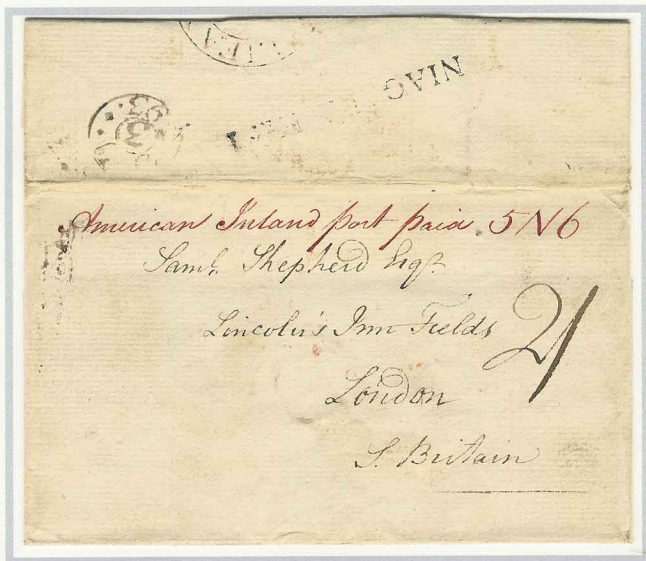 NIAG
American Inland port paid 5 N 6
Saml. Shepherd Esqr.
Lincoln's Inn Fields
2/
London
S. Britain